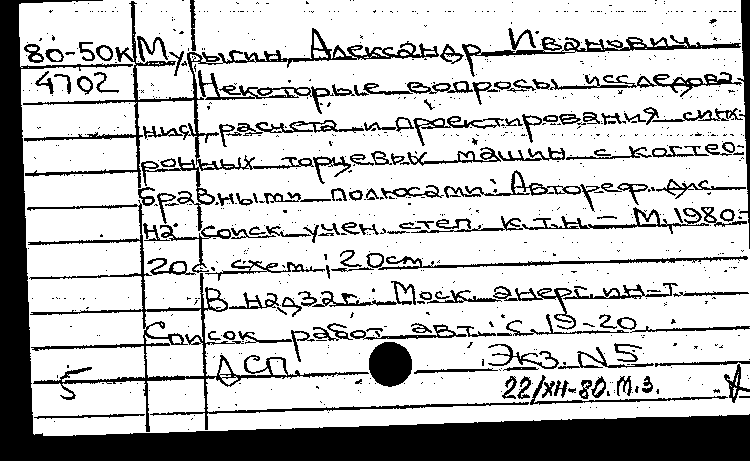 80-50к Мурыгин, Александр Иванович.
4702 Некоторые вопросы исследова-
ния, расчета и проектирования синх-
ронных торцевых машин с когтео-
бразными полюсами: Автореф. дис.
на соиск. учен. степ. к.т.н. – М., 1980.-
20с., схем.; 20см.
В надзаг.: Моск. энерг. ин-т.
Список работ авт.: с. 19-20.
ДСП. Экз. N 5
5 22/XII-80. М.З.